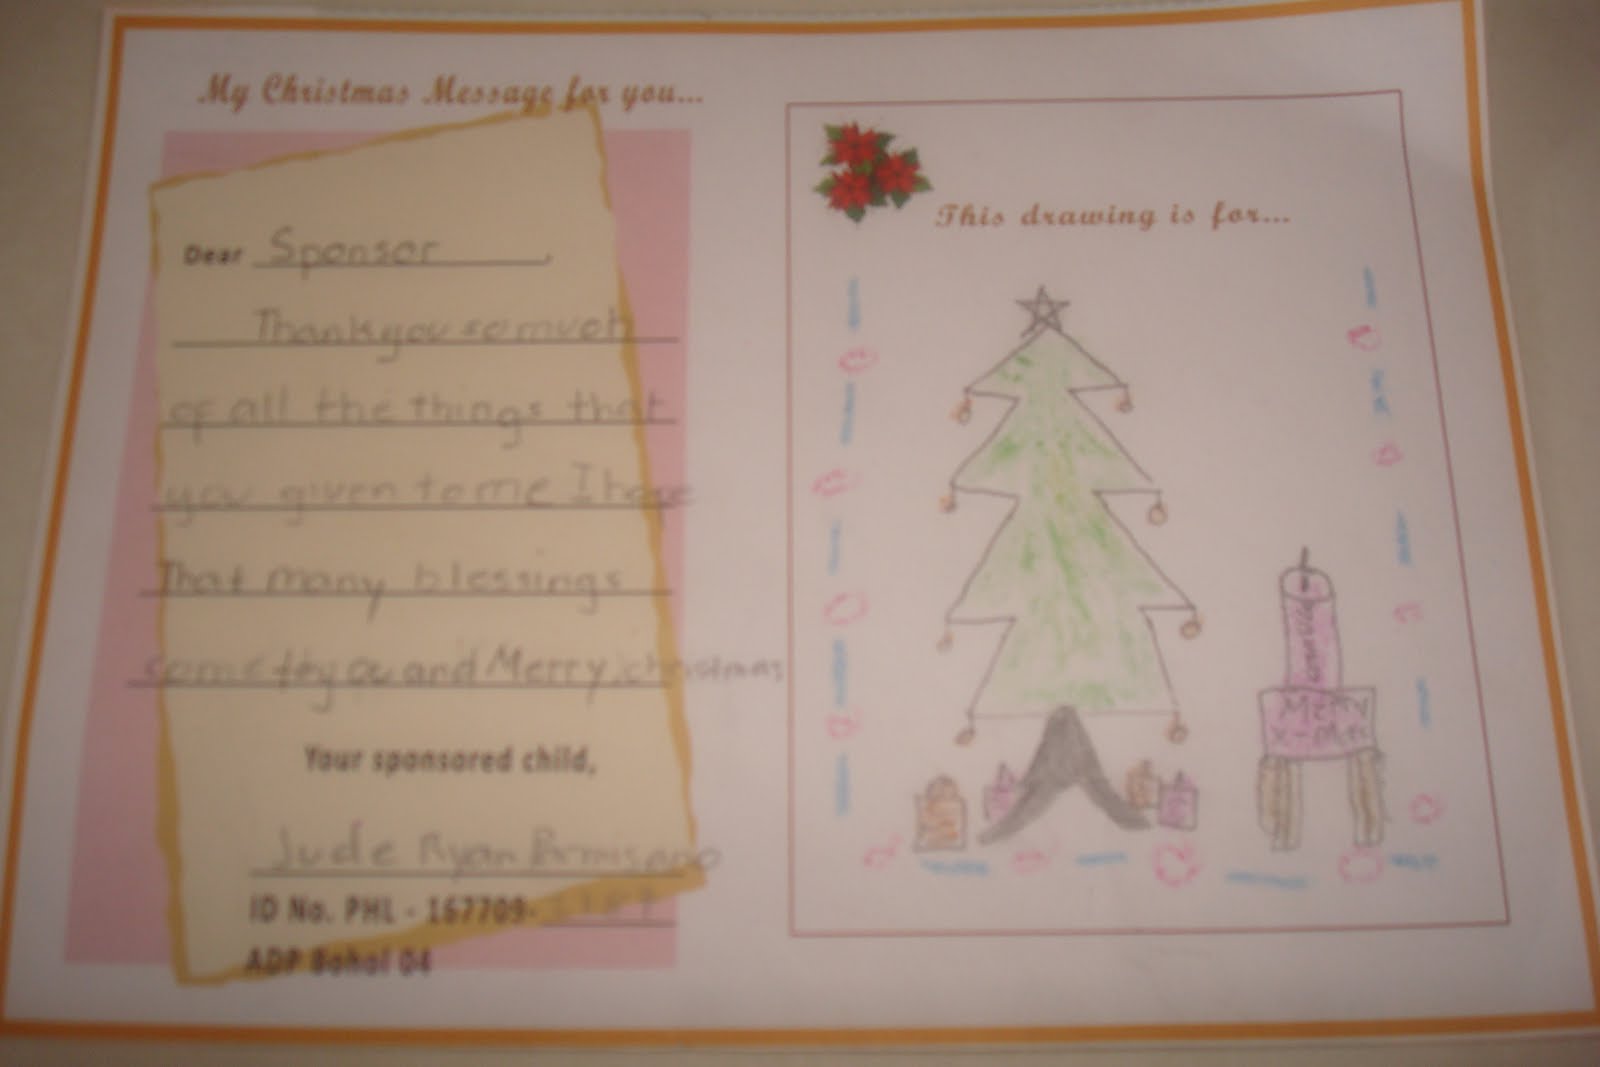 My Christmas Message for you...
Dear Sponsor,
Thank you so much
of all the things that
you given to me I hope
That many blessings
and Merry christmas
Your sponsored child,
Jude Ryan
ID No. PHL - 167709-
ADP Bohol 04
This drawing is for...
Merry
X-Mas